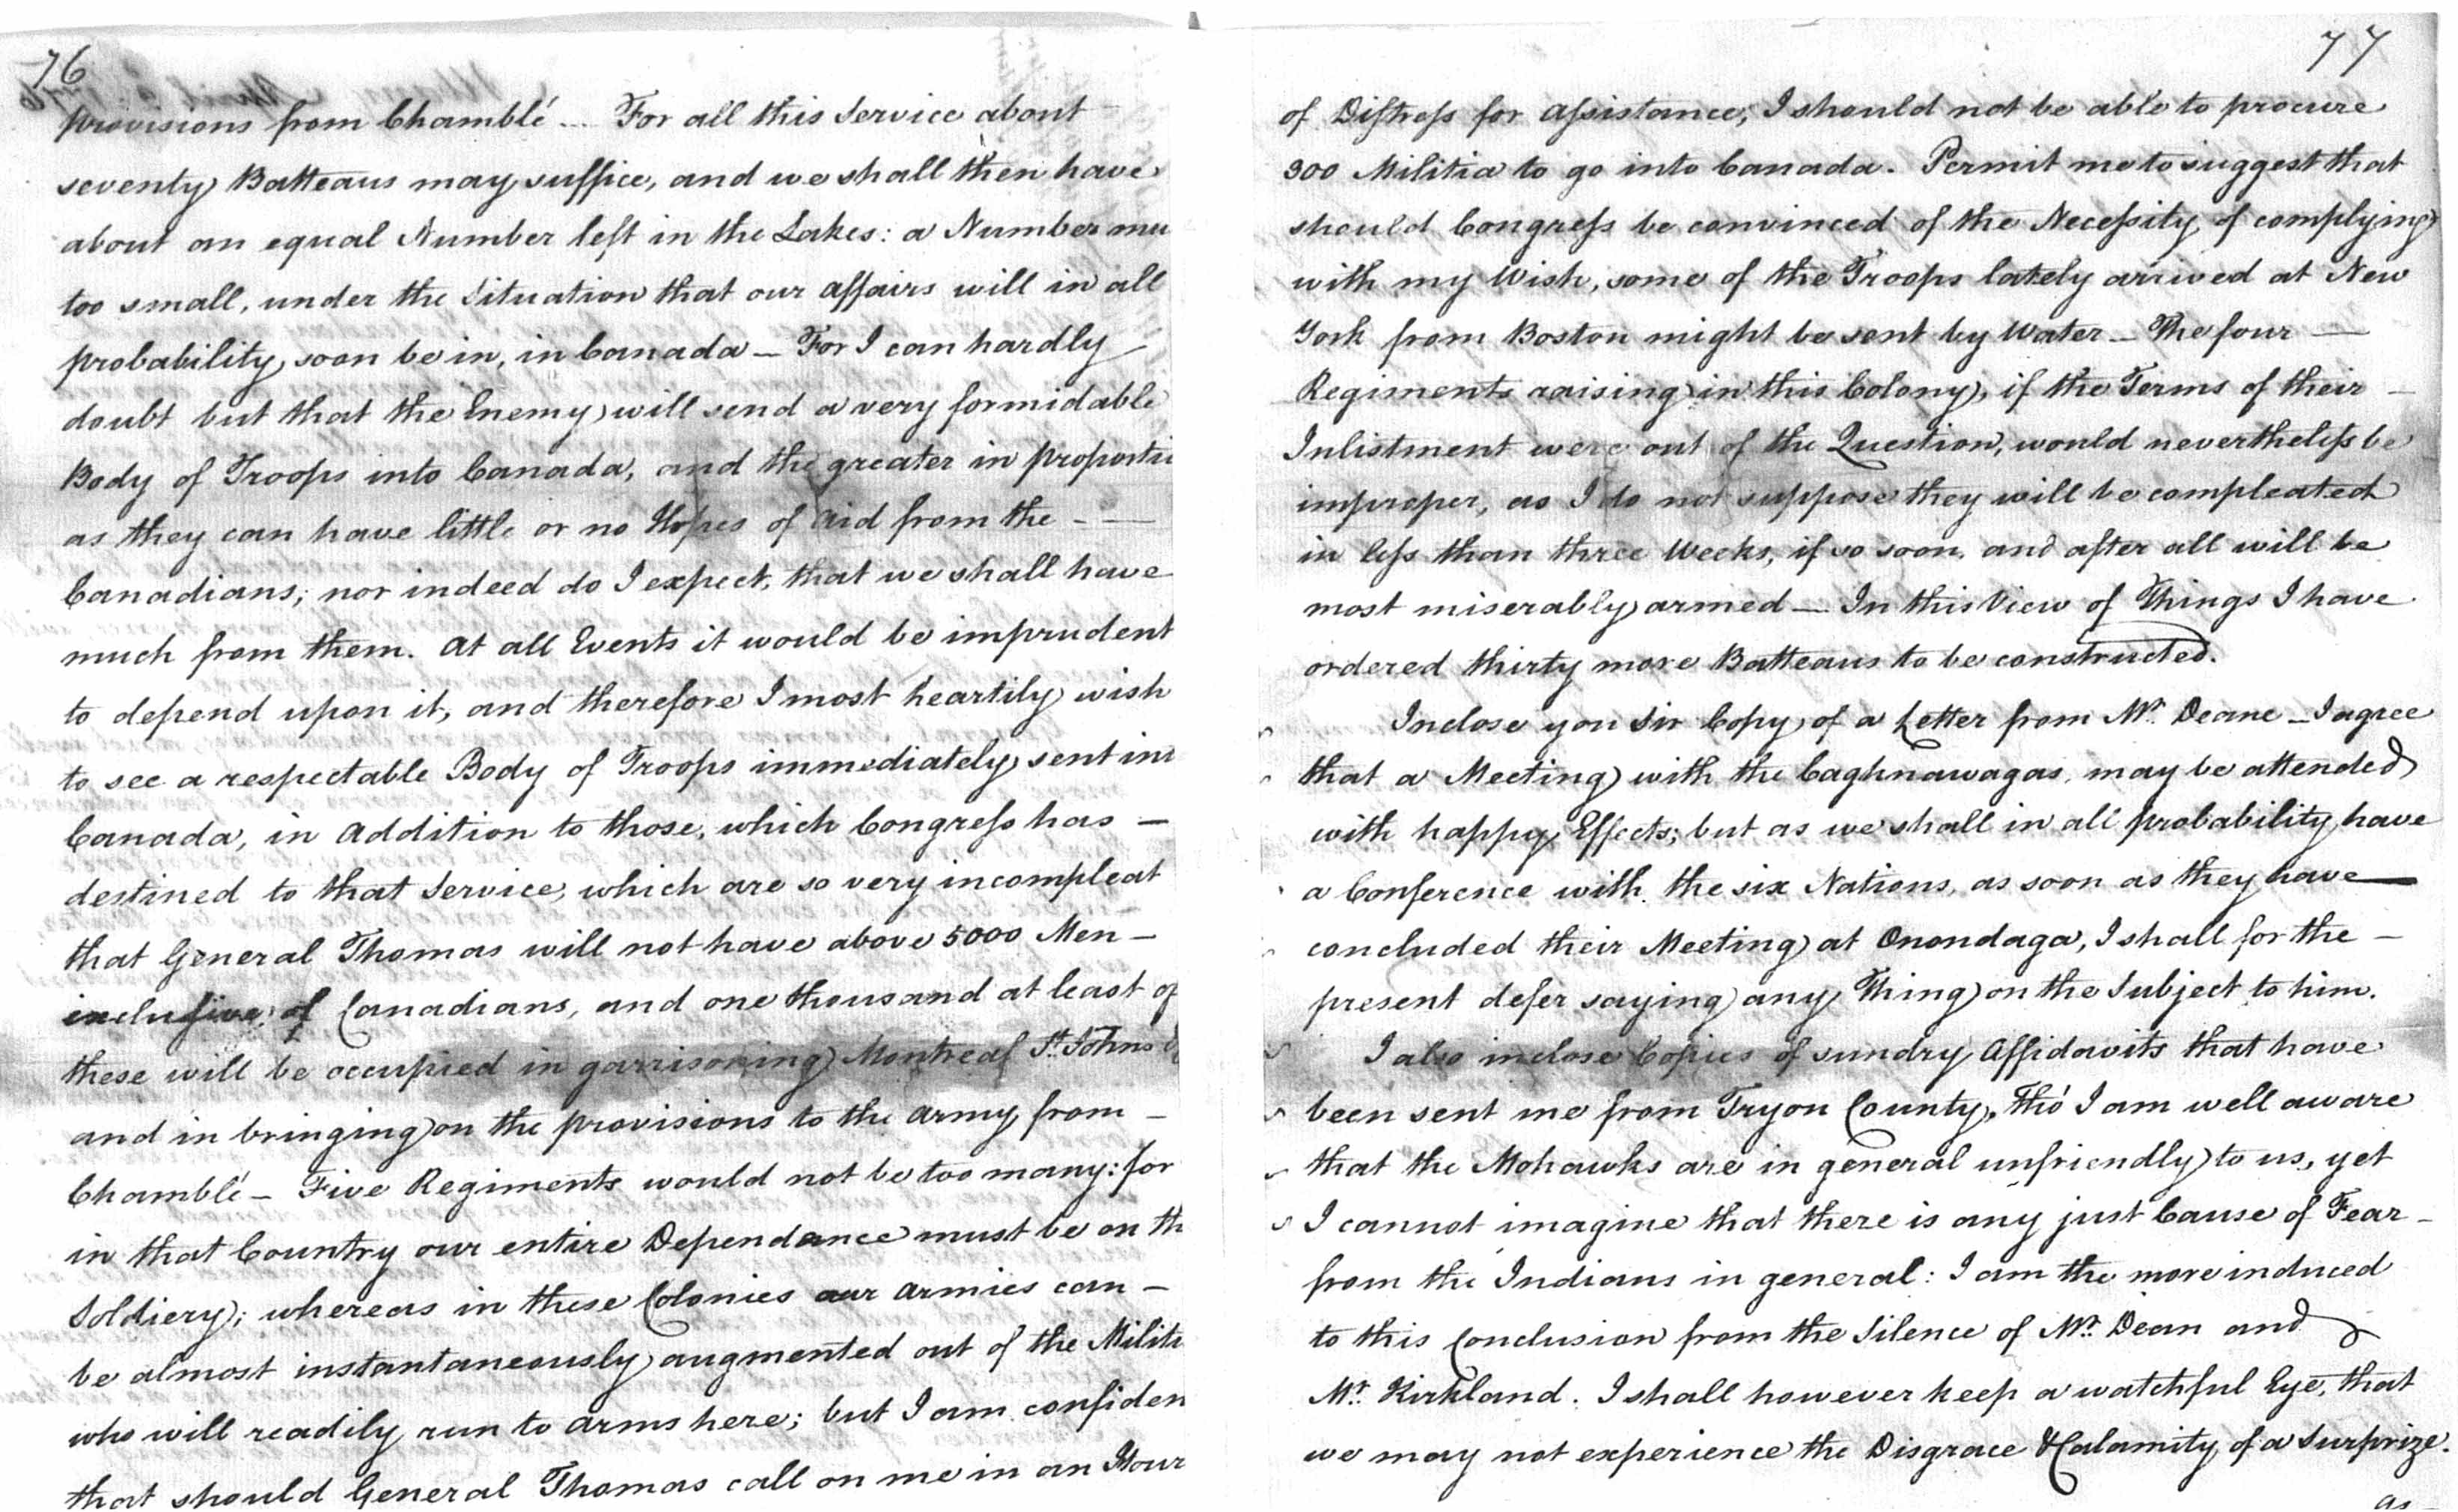 76
provisions from Chamblé — For all this Service about
seventy Batteaus may suffice, and we shall then have
about an equal Number left in the Lakes: a Number mu
too small, under the Situation that our affairs will in all
probability soon be in, in Canada — For I can hardly
doubt but that the Enemy will send a very formidable
Body of Troops into Canada, and the greater in proporti
as they can have little or no Hopes of Aid from the — —
Canadians; nor indeed do I expect, that we shall have
much from them. At all Events it would be imprudent
to depend upon it, and therefore I most heartily wish
to see a respectable Body of Troops immediately sent int
Canada, in addition to those, which Congress has —
destined to that Service, which are so very incompleat
that General Thomas will not have above 5000 Men —
inclusive of Canadians, and one thousand at least of
these will be occupied in garrisoning Montreal St. Johns &
and in bringing on the provisions to the army from —
Chamblé — Five Regiments would not be too many: for
in that Country our entire Dependance must be on th
Soldiery; whereas in these Colonies our armies can —
be almost instantaneously augmented out of the Militi
who will readily run to arms here; but I am confiden
that should General Thomas call on me in an Hour
77
of Distress for assistance, I should not be able to procure
300 Militia to go into Canada. Permit me to suggest that
should Congress be convinced of the Necessity of complying
with my Wish, some of the Troops lately arrived at New
York from Boston might be sent by Water — The four —
Regiments raising in this Colony, if the Terms of their —
Inlistment were out of the Question, would nevertheless be
improper, as I do not suppose they will be compleated
in less than three Weeks, if so soon, and after all will be
most miserably armed — In this View of Things I have
ordered thirty more Batteaus to be constructed.
Inclose you Sir Copy of a Letter from Mr. Deane — I agree
that a Meeting with the Caghnawagas, may be attended
with happy Effects; but as we shall in all probability have
a Conference with the six Nations, as soon as they have —
concluded their Meeting at Onondaga, I shall for the —
present defer saying any Thing on the Subject to him.
I also inclose Copies of sundry Affidavits that have
been sent me from Tryon County, Tho' I am well aware
that the Mohawks are in general unfriendly to us, yet
I cannot imagine that there is any just Cause of Fear —
from the Indians in general: I am the more induced
to this Conclusion from the Silence of Mr. Dean and
Mr. Kirkland. I shall however keep a watchful Eye, that
we may not experience the Disgrace & Calamity of a Surprize.
as